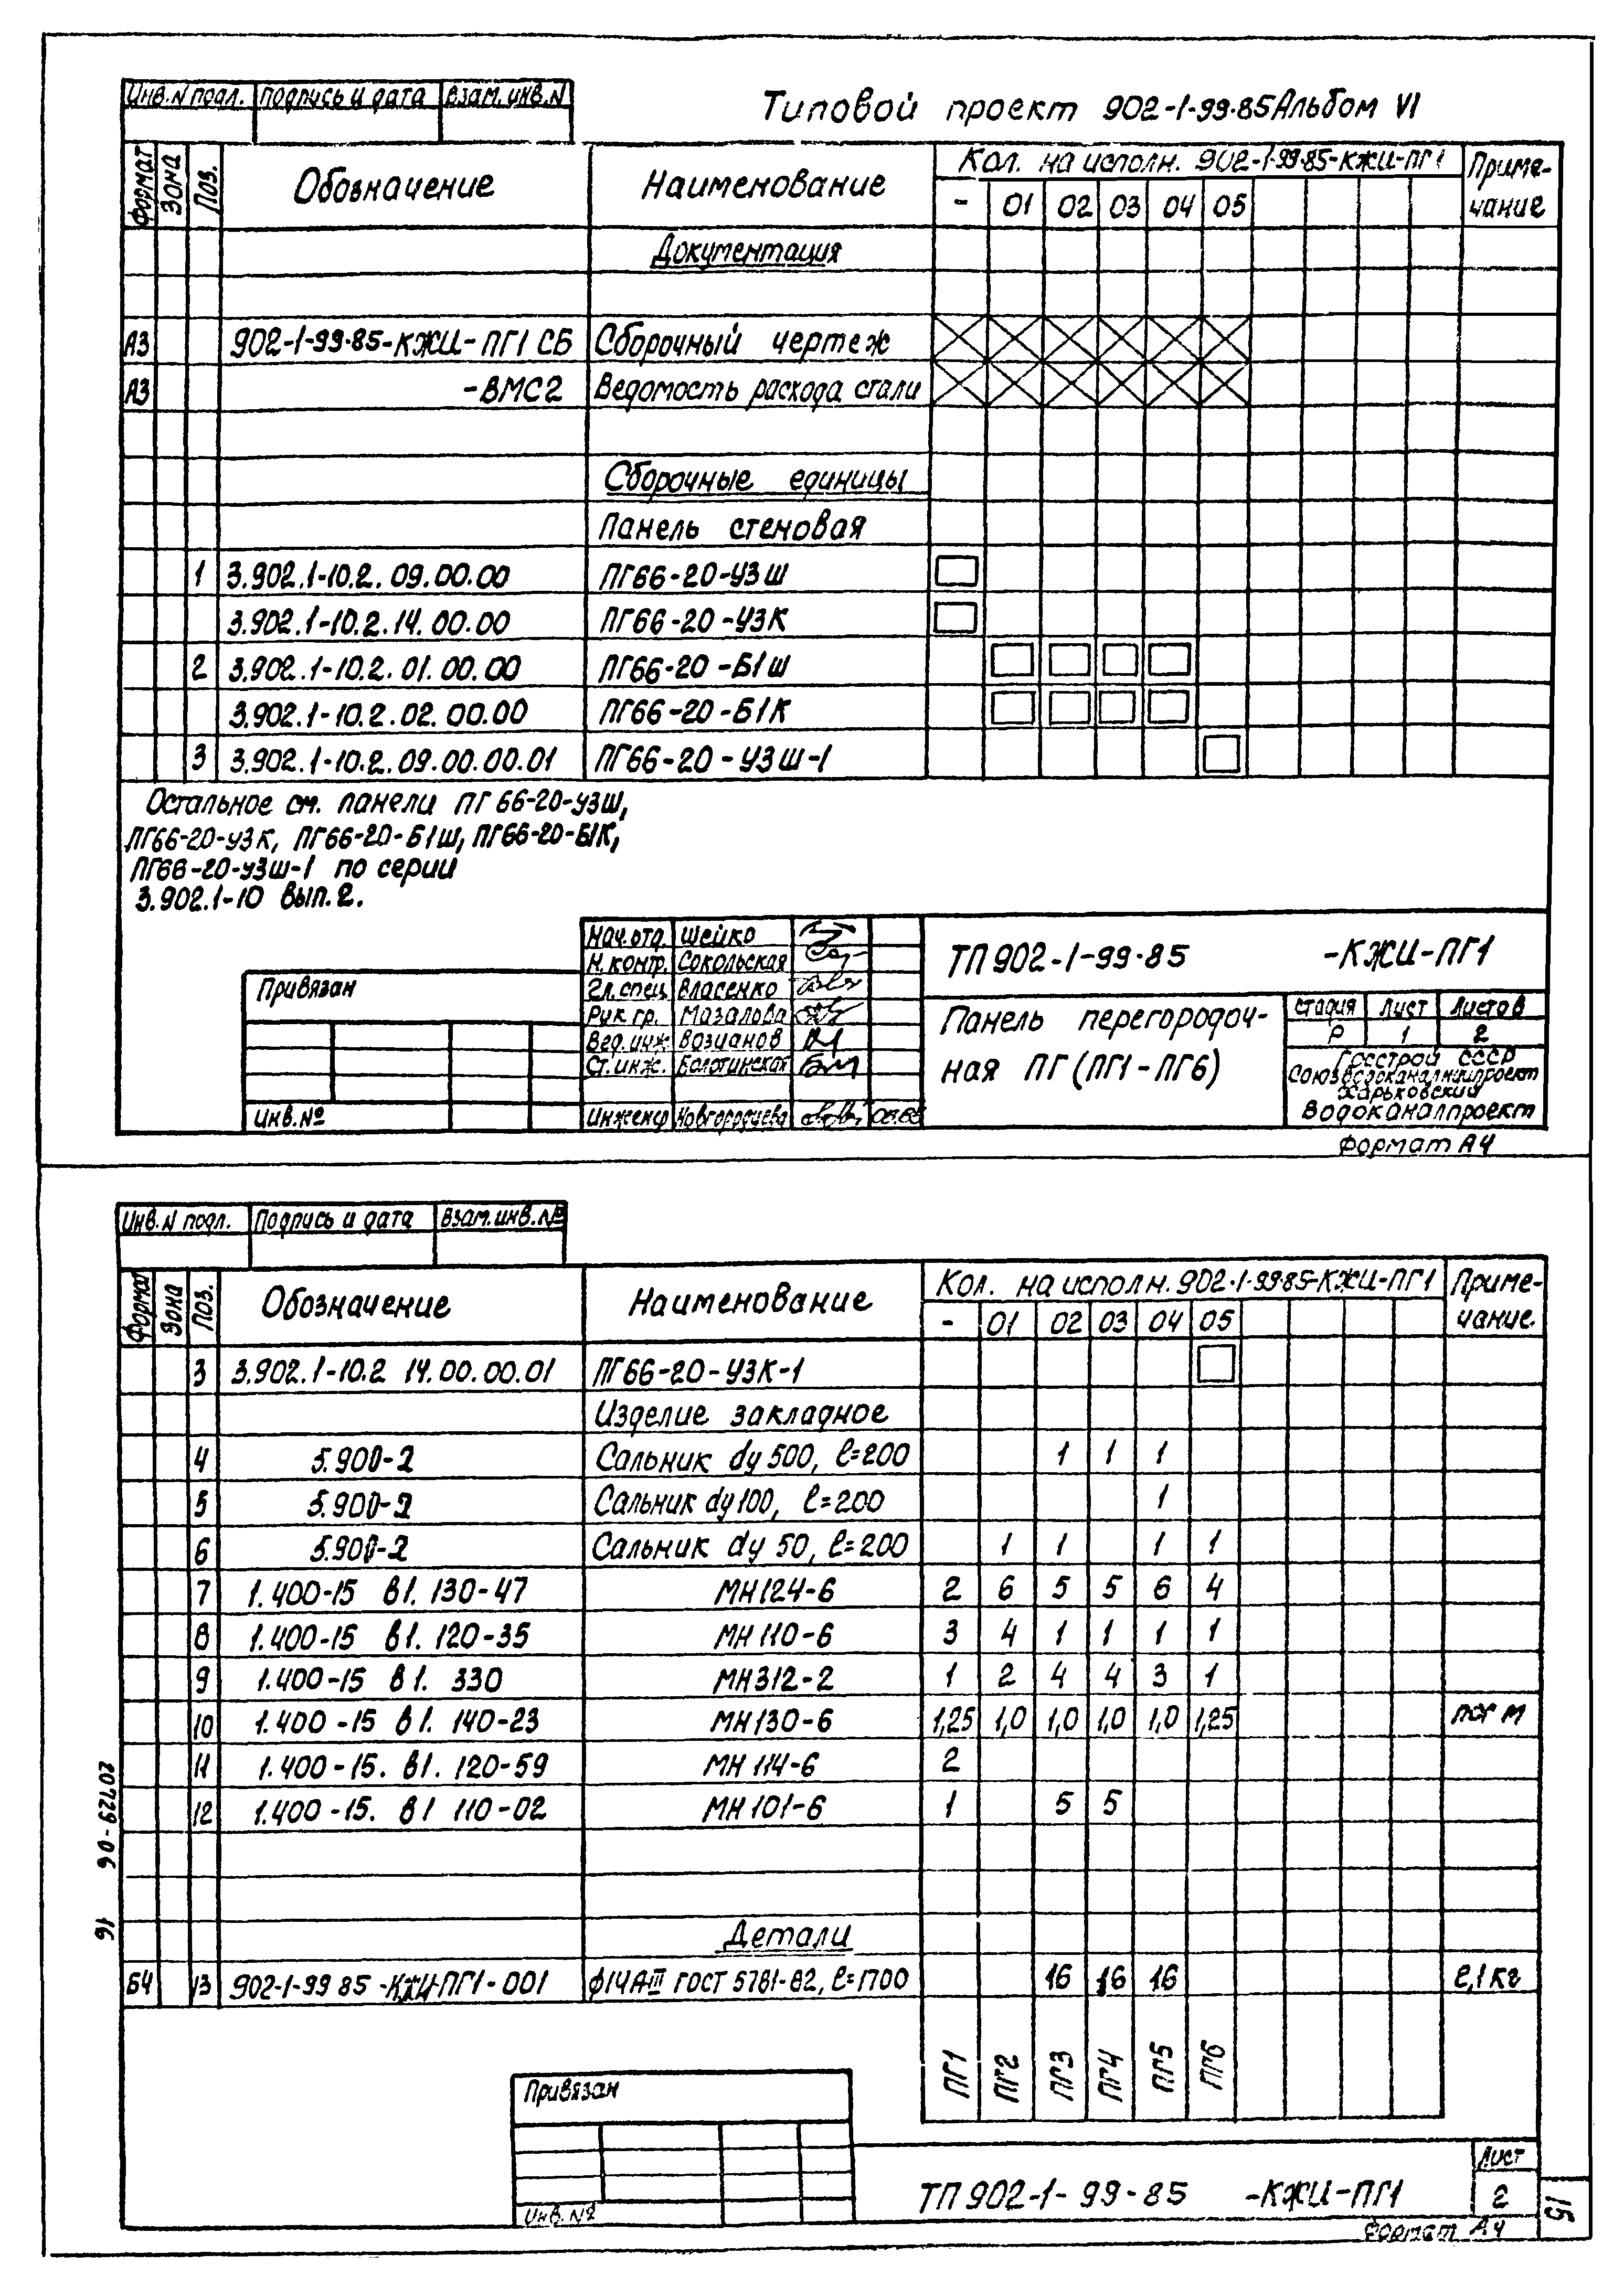 Инв.N подл. Подпись и дата Взам.инв.N
Типовой проект 902-1-99·85 Альбом VI
Формат Зона Поз. Обозначение Наименование Кол. на исполн. 902-1-99·85-КЖИ-ПГ1 Приме-
- 01 02 03 04 05 чание
Документация
А3 902-1-99·85-КЖИ-ПГ1 СБ Сборочный чертеж
А3 -ВМС2 Ведомость расхода стали
Сборочные единицы
Панель стеновая
1 3.902.1-10.2.09.00.00 ПГ66-20-У3Ш
3.902.1-10.2.14.00.00 ПГ66-20-У3К
2 3.902.1-10.2.01.00.00 ПГ66-20-Б1Ш
3.902.1-10.2.02.00.00 ПГ66-20-Б1К
3 3.902.1-10.2.09.00.00.01 ПГ66-20-У3Ш-1
Остальное см. панели ПГ66-20-У3Ш,
ПГ66-20-У3К, ПГ66-20-Б1Ш, ПГ66-20-Б1К,
ПГ66-20-У3Ш-1 по серии
3.902.1-10 вып.2.
Привязан
Инв.№
Нач.отд. Шейко
Н.контр. Сокольская
Гл.спец. Власенко
Рук.гр. Мазалова
Вед.инж. Возианов
Ст.инж. Болотинская
Инженер Новгородцева
ТП 902-1-99·85 -КЖИ-ПГ1
Панель перегородоч-
ная ПГ(ПГ1-ПГ6)
Стадия Лист Листов
Р 1 2
Госстрой СССР
Союзводоканалниипроект
Харьковский
Водоканалпроект
Формат А4
Инв.N подл. Подпись и дата Взам.инв.№
Формат Зона Поз. Обозначение Наименование Кол. на исполн. 902-1-99·85-КЖИ-ПГ1 Приме-
- 01 02 03 04 05 чание.
3 3.902.1-10.2 14.00.00.01 ПГ66-20-У3К-1
Изделие закладное
4 5.900-2 Сальник dу 500, ℓ=200 1 1 1
5 5.900-2 Сальник dу 100, ℓ=200 1
6 5.900-2 Сальник dу 50, ℓ=200 1 1 1 1
7 1.400-15 в1. 130-47 МН124-6 2 6 5 5 6 4
8 1.400-15 в1. 120-35 МН110-6 3 4 1 1 1 1
9 1.400-15 в1. 330 МН312-2 1 2 4 4 3 1
10 1.400-15 в1. 140-23 МН130-6 1,25 1,0 1,0 1,0 1,0 1,25 пог м
11 1.400-15. в1. 120-59 МН 114-6 2
12 1.400-15. в1 110-02 МН101-6 1 5 5
Детали
Б4 13 902-1-99 85-КЖИ-ПГ1-001 ϕ14АIII ГОСТ 5781-82, ℓ=1700 16 16 16 2,1 кг
ПГ1 ПГ2 ПГ3 ПГ4 ПГ5 ПГ6
20729-06 16
Привязан
Инв.№
ТП 902-1-99-85 -КЖИ-ПГ1
Лист
2
Формат А4
15